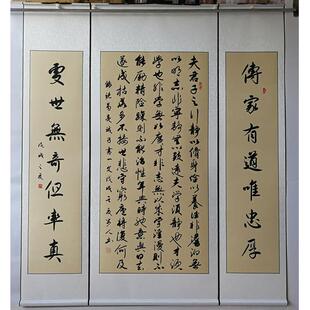 傳家有道唯忠厚
夫君子之行靜以脩身儉以養德非澹泊無
以明志非寧靜無以致遠夫學須靜也才須
學也非學無以廣才非志無以成學淫慢則不
能勵精險躁則不能治性年與時馳意與日去
遂成枯落多不接世悲守窮廬將復何及
諸葛亮誡子書一文戊戌之夏
處世無奇但率真
戊戌之夏